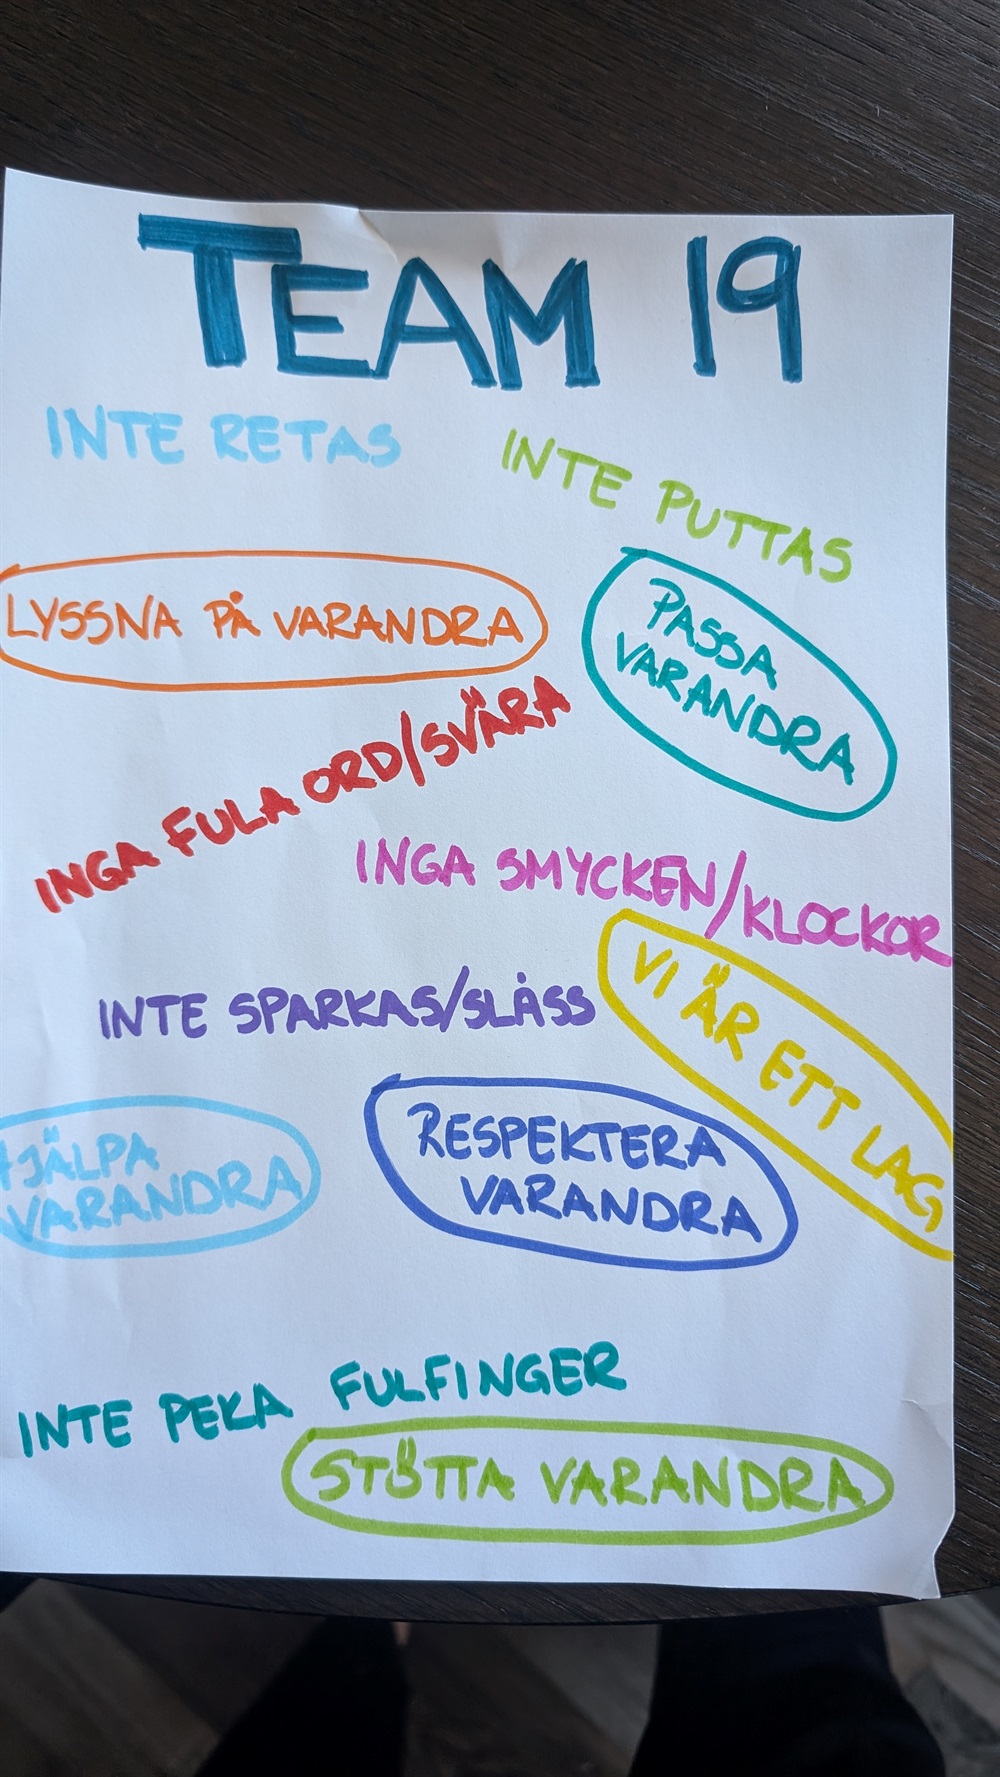 TEAM 19
INTE RETAS
INTE PUTTAS
LYSSNA PÅ VARANDRA
PASSA
VARANDRA
INGA FULA ORD/SVÄRA
INGA SMYCKEN/KLOCKOR
INTE SPARKAS/SLÅSS
VI ÄR ETT LAG
HJÄLPA
VARANDRA
RESPEKTERA
VARANDRA
INTE PEKA FULFINGER
STÖTTA VARANDRA